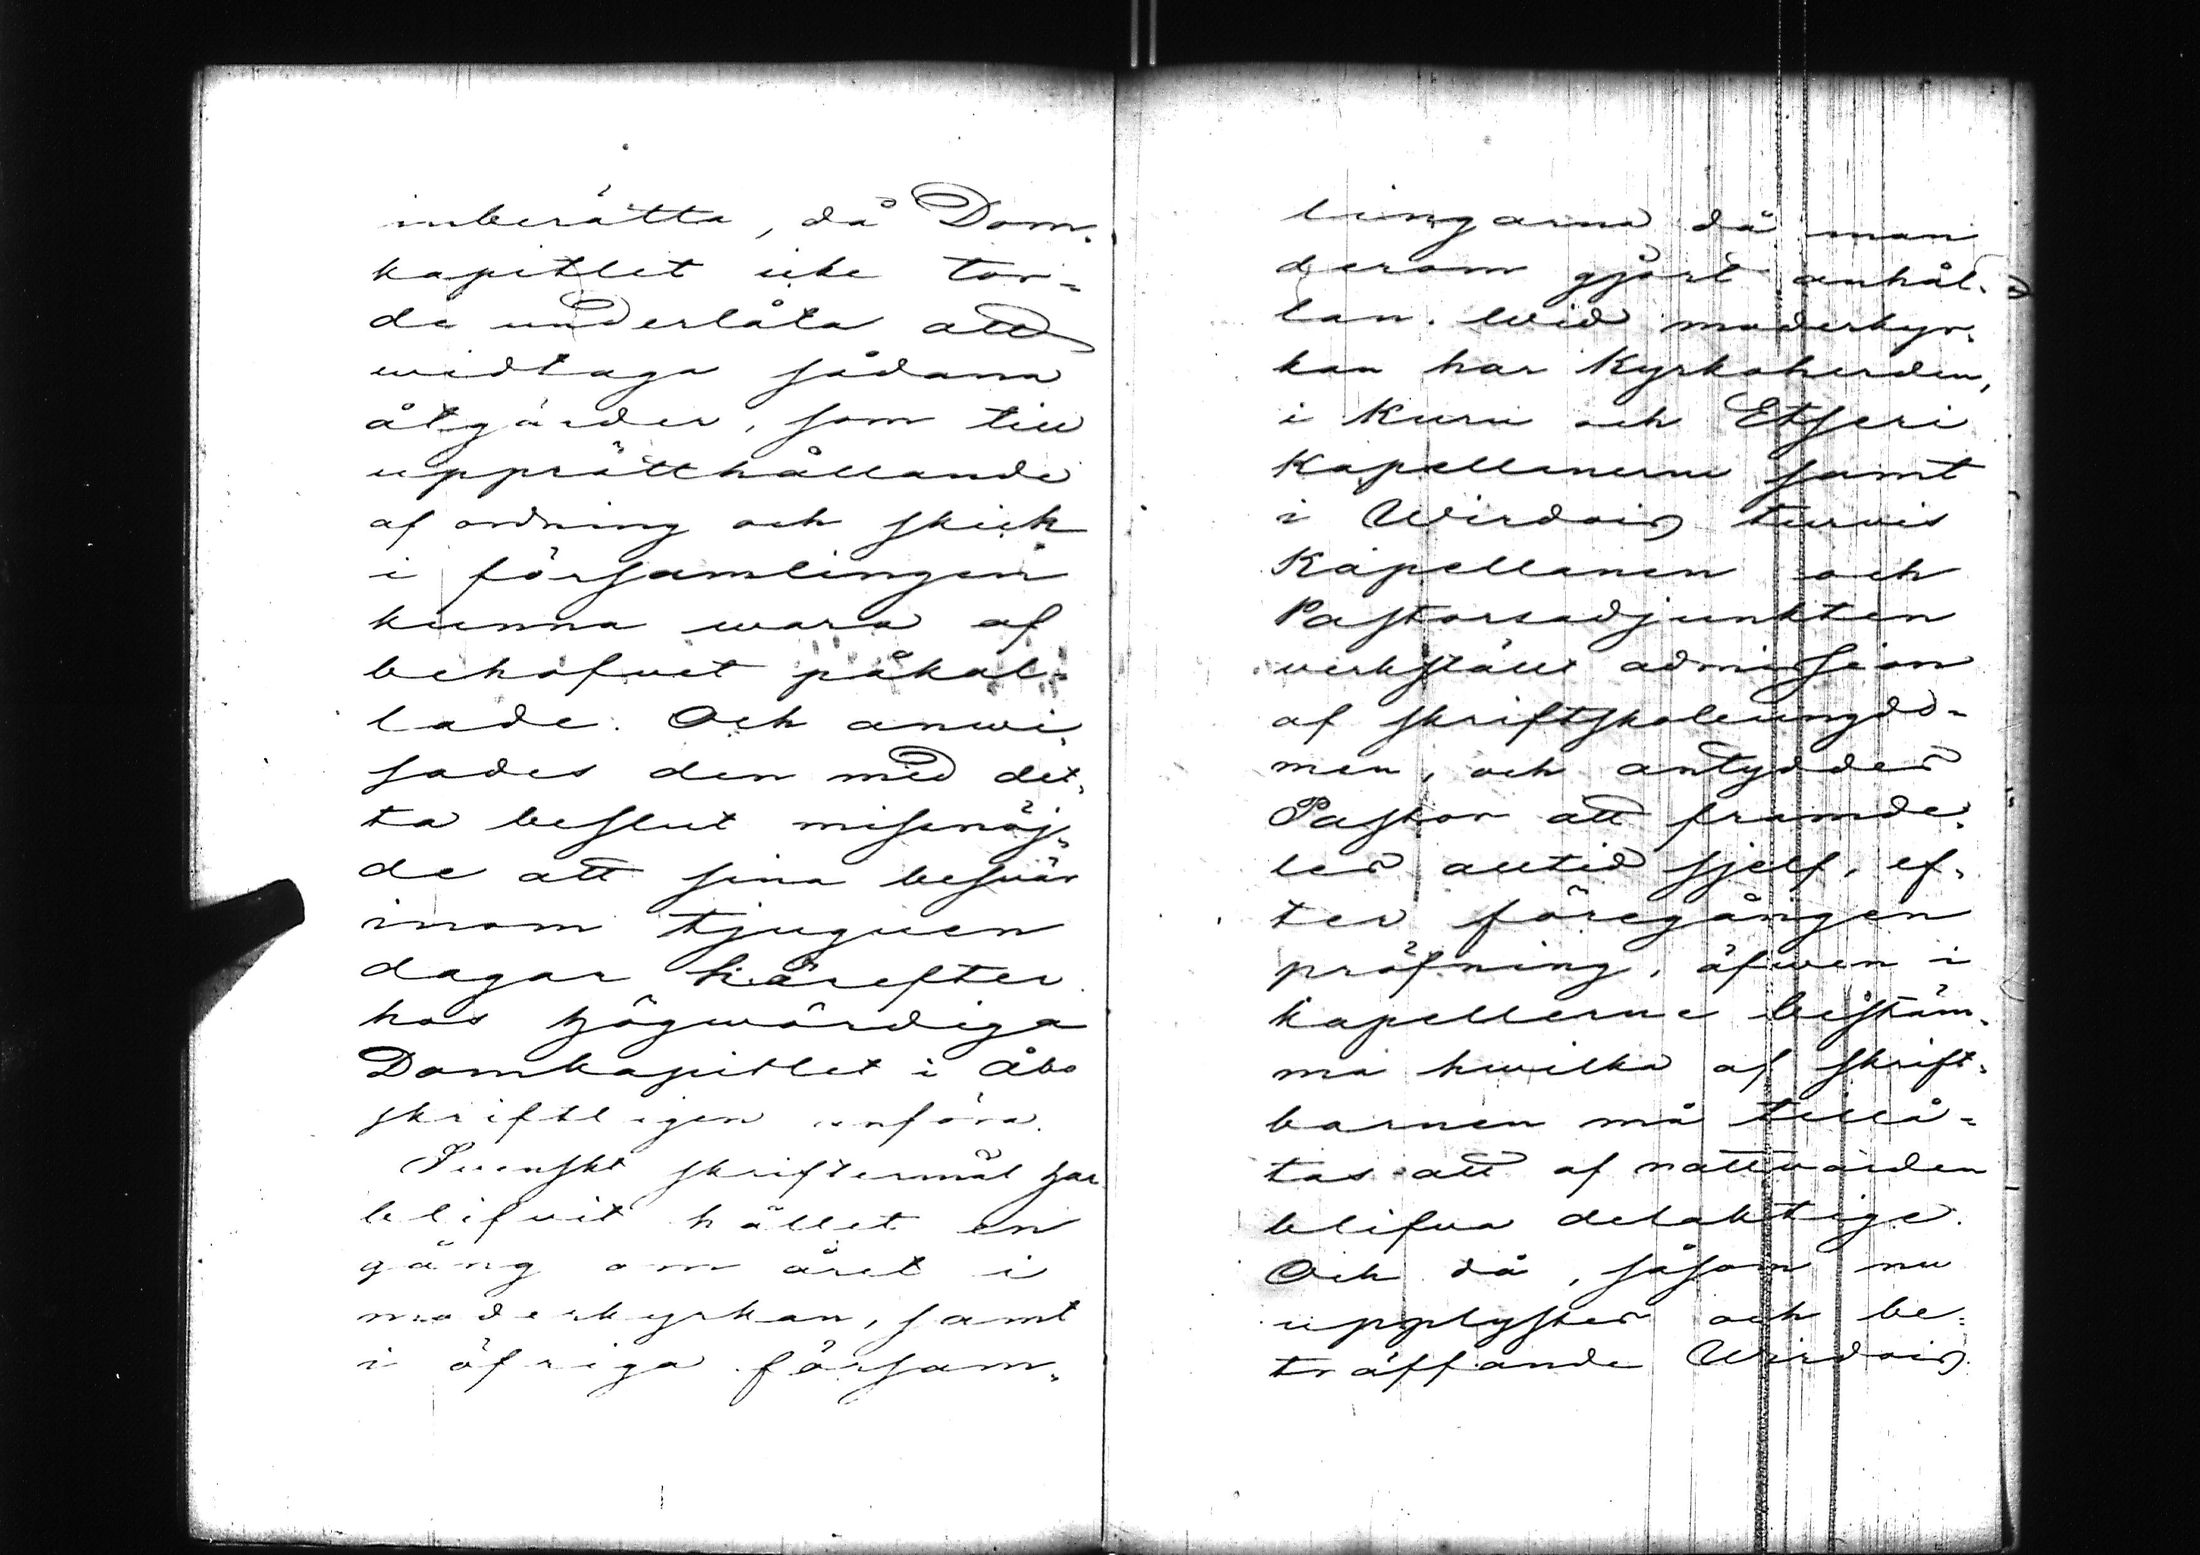 inberätta, då Dom-
kapitlet icke tor=
de underlåta att
widtaga sådana
åtgärder, som till
upprätthållande
af ordning och skick
i församlingen
kunna wara af
behofvet påkal=
lade. Och anwi,
sades den med det,
ta beslut missnöj,
de att sina besvär
inom tjuguen
dagar härefter
hos högwördiga
Domkapitlet i Åbo
skriftligen anföra.
Svenskt skriftermål har
blifvit hållet en
gång om året i
moderkyrkan, samt
i öfriga försam,
lingarna då man
derom gjort anhål-
lan. Wid moderkyr,
kan har Kyrkoherden,
i Kuru och Etseri
Kapellanerne samt
i Wirdois turvis
Kapellanen och
Pastorsadjunkten
verkställt admission
af skriftskoleungdo=
men, och antyddes
Pastor att framde,
les alltid sjelf, ef,
ter föregången
pröfning, äfwen i
kapellerne bestäm,
ma hwilka af skrift,
barnen må tillå=
tas att af nattvarden
blifva delaktige.
Och då, såsom nu
upplystes och be=
träffande Wirdois